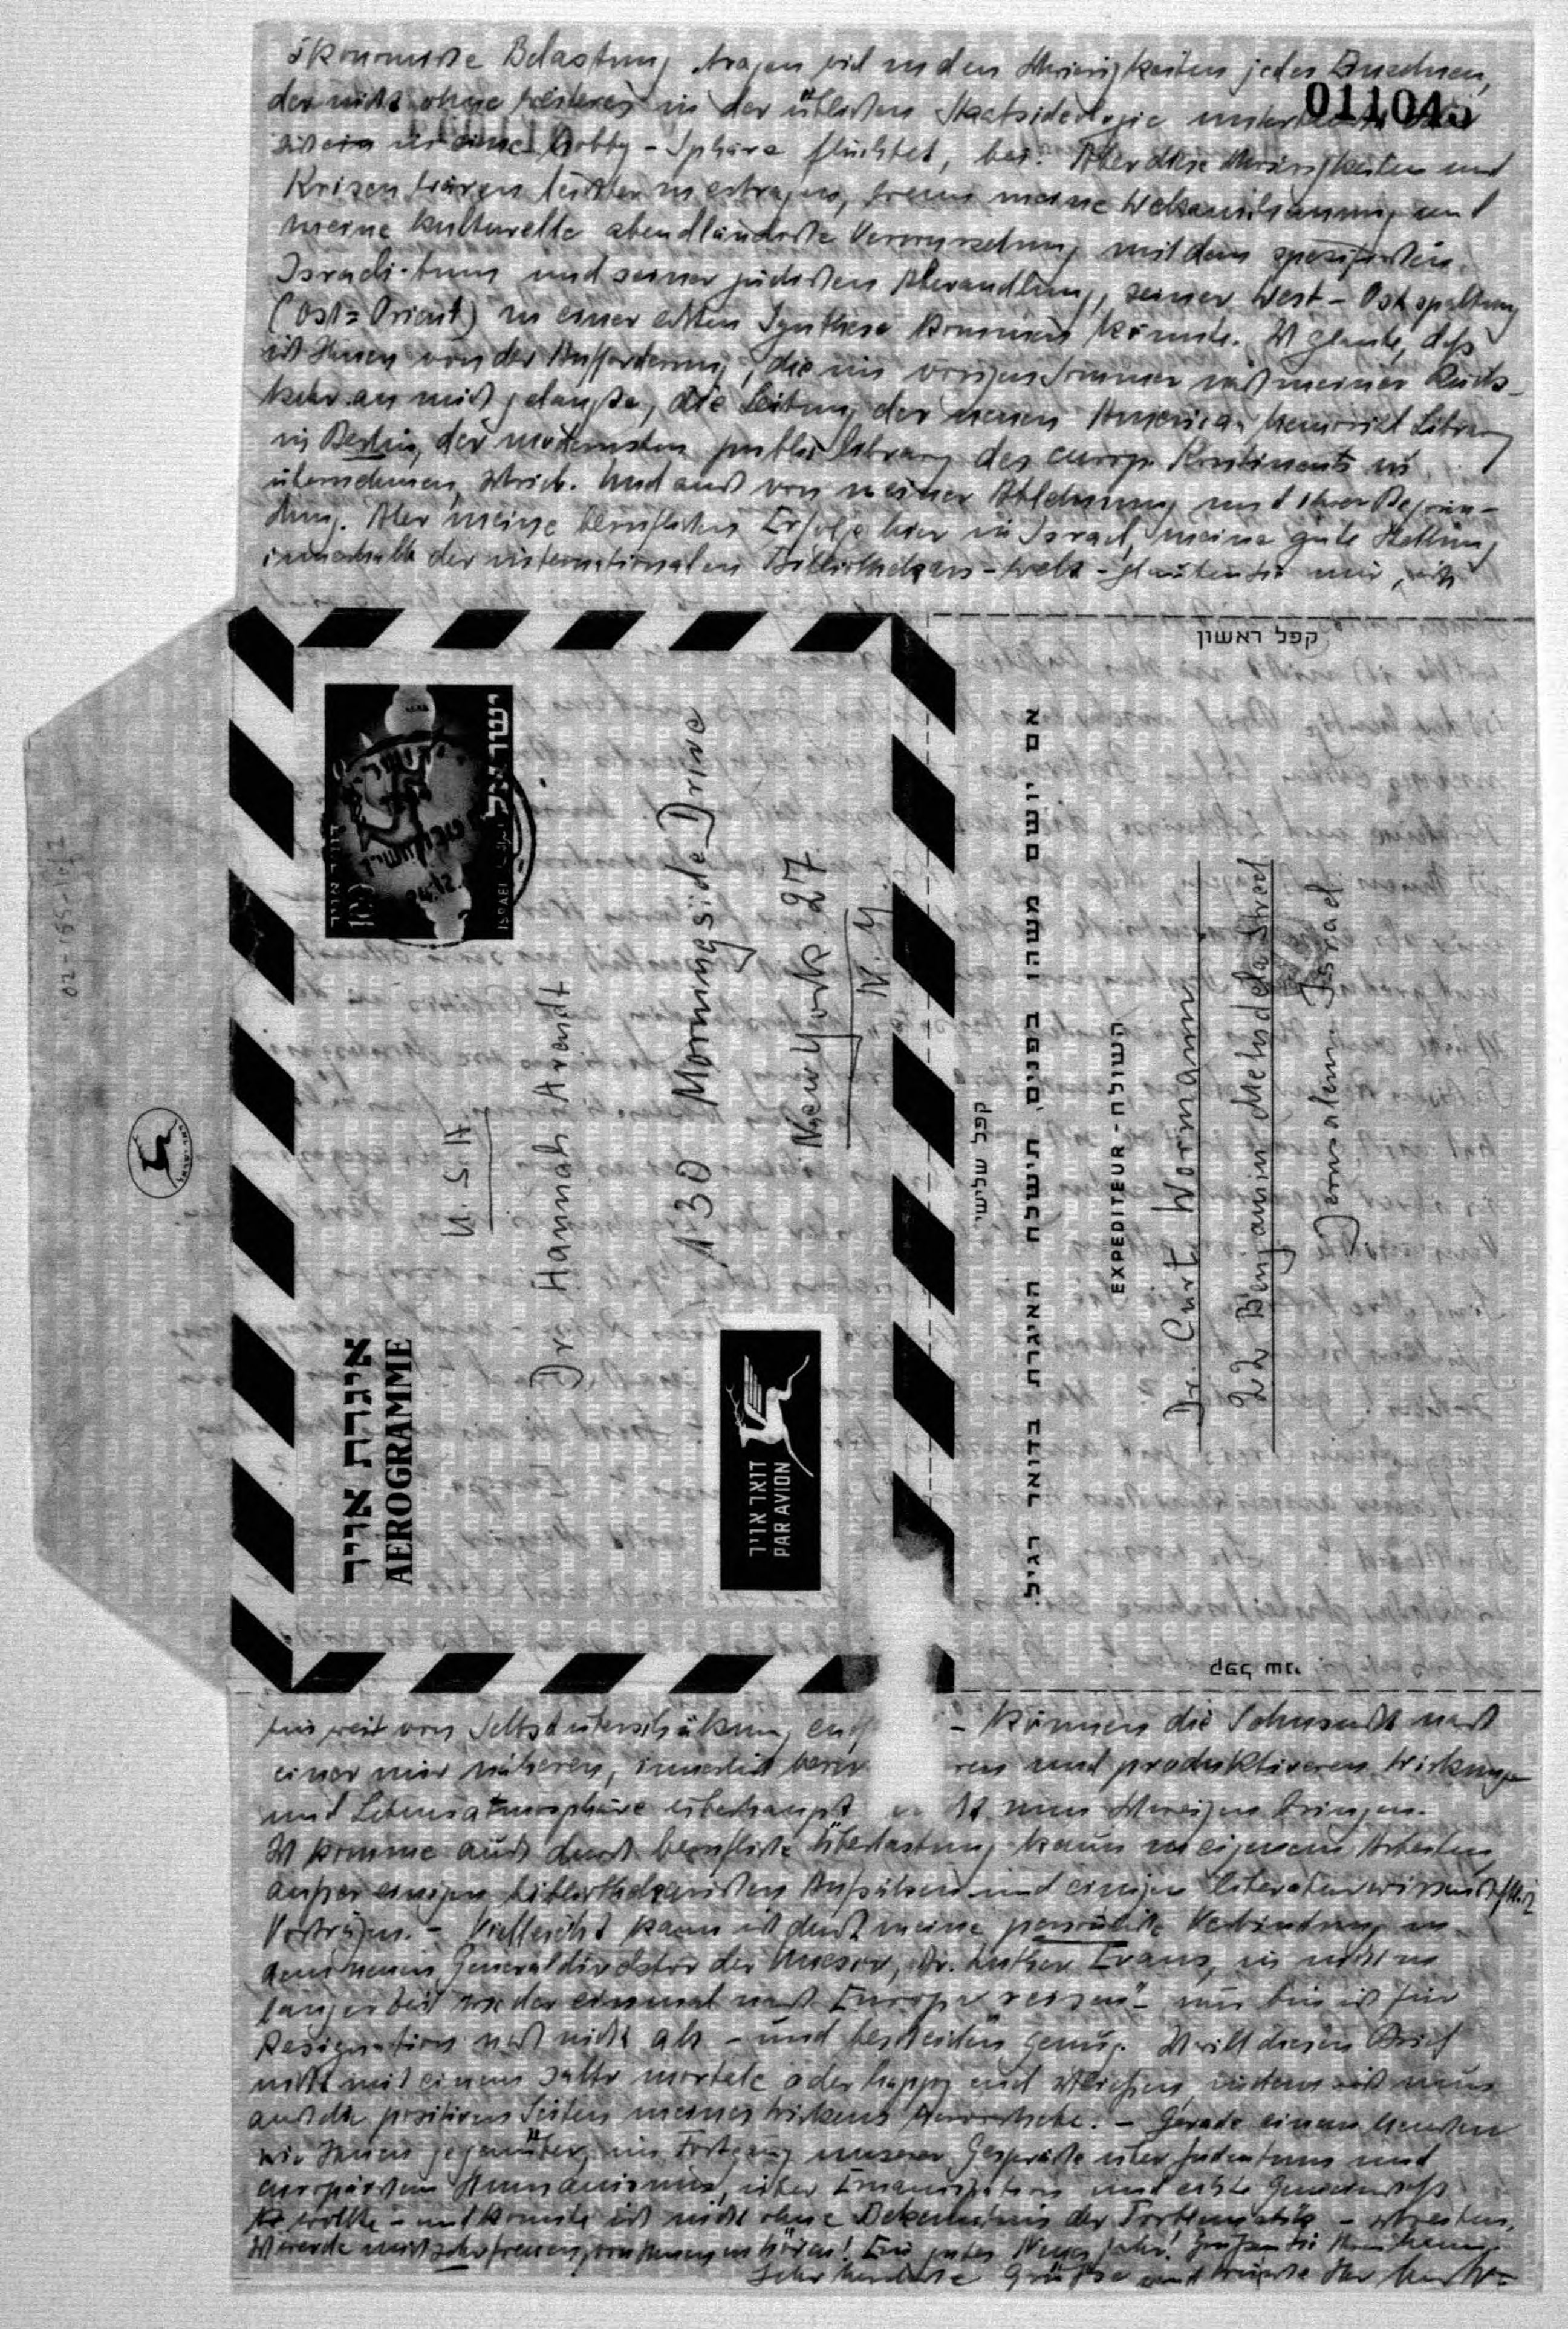 ökonomische Belastung, tragen viel zu den Schwierigkeiten jedes Einzelnen,
011045
der nicht ohne weiteres in der üblichen Staatsideologie
in eine Hobby-Sphäre flüchtet, bei. Aber diese Schwierigkeiten und
Krisen wären leichter zu ertragen, wenn meine Weltanschauung und
meine kulturelle abendländische Verwurzelung mit dem spezifischen
Israeli-tum und seiner jüdischen Abwandlung, seiner West-Ost spaltung
(Ost = Orient) zu einer echten Synthese kommen könnte. Ich glaube, daß
ich Ihnen von der Aufforderung, die im vorigen Sommer nach meiner Rück-
kehr an mich gelangte, die Leitung der neuen American Memorial Library
in Berlin, der modernsten public library des europ. Kontinents zu
übernehmen, schrieb. Und auch von meiner Ablehnung und ihrer Begrün-
dung. Aber meine beruflichen Erfolge hier in Israel, meine gute Stellung
innerhalb der internationalen Bibliothekars-welt - glauben Sie mir, ich
קפל ראשון
ישראל
ISRAEL
דואר אויר
100
24.12.
איגרת אויר
AEROGRAMME
Dr. Hannah Arendt
130 Morningside Drive
New York 27
N.Y.
U.S.A
דואר אויר
PAR AVION
קפל שלישי
אם יושם משהו בפנים, תישלח האיגרת בדואר רגיל.
השולח - EXPEDITEUR
Dr. Curt Wormann
22 Benjamin Metudela Street
Jerusalem Israel
קפל שני
bin weit von Selbstüberschätzung - können die Sehnsucht nach
einer mir näheren, innerlich und produktiveren Wirkungs
und Lebensatmosphäre überhaupt zum Schweigen bringen.
Ich komme auch durch berufliche Überlastung kaum zu eigenem Arbeiten,
außer einigen bibliothekarischen Aufsätzen und einigen literaturwissenschaftlich
Vorträgen. - Vielleicht kann ich durch meine persönliche Verbindung zu
dem neuen Generaldirektor der Unesco, Dr. Luther Evans, in nicht zu
langer Zeit wieder einmal nach Europa reisen - nun bin ich für
Resignation noch nicht alt - und bescheiden genug. Ich will diesen Brief
nicht mit einem salto mortale oder happy end schließen, indem ich nun
auch die positiven Seiten meines Wirkens hervorhebe. - Gerade einem Menschen
wie Ihnen gegenüber, im Fortgang unserer Gespräche über Judentum und
europäischen Humanismus, über Emanzipation und echte Gemeinschaft
wollte - und konnte ich nicht ohne Bekenntnis der Problematik - schreiben.
Ich werde mich sehr freuen, von Ihnen zu hören! Ein gutes Neues Jahr! Grüßen Sie Ihren
Sehr herzliche Grüße und Wünsche Ihr